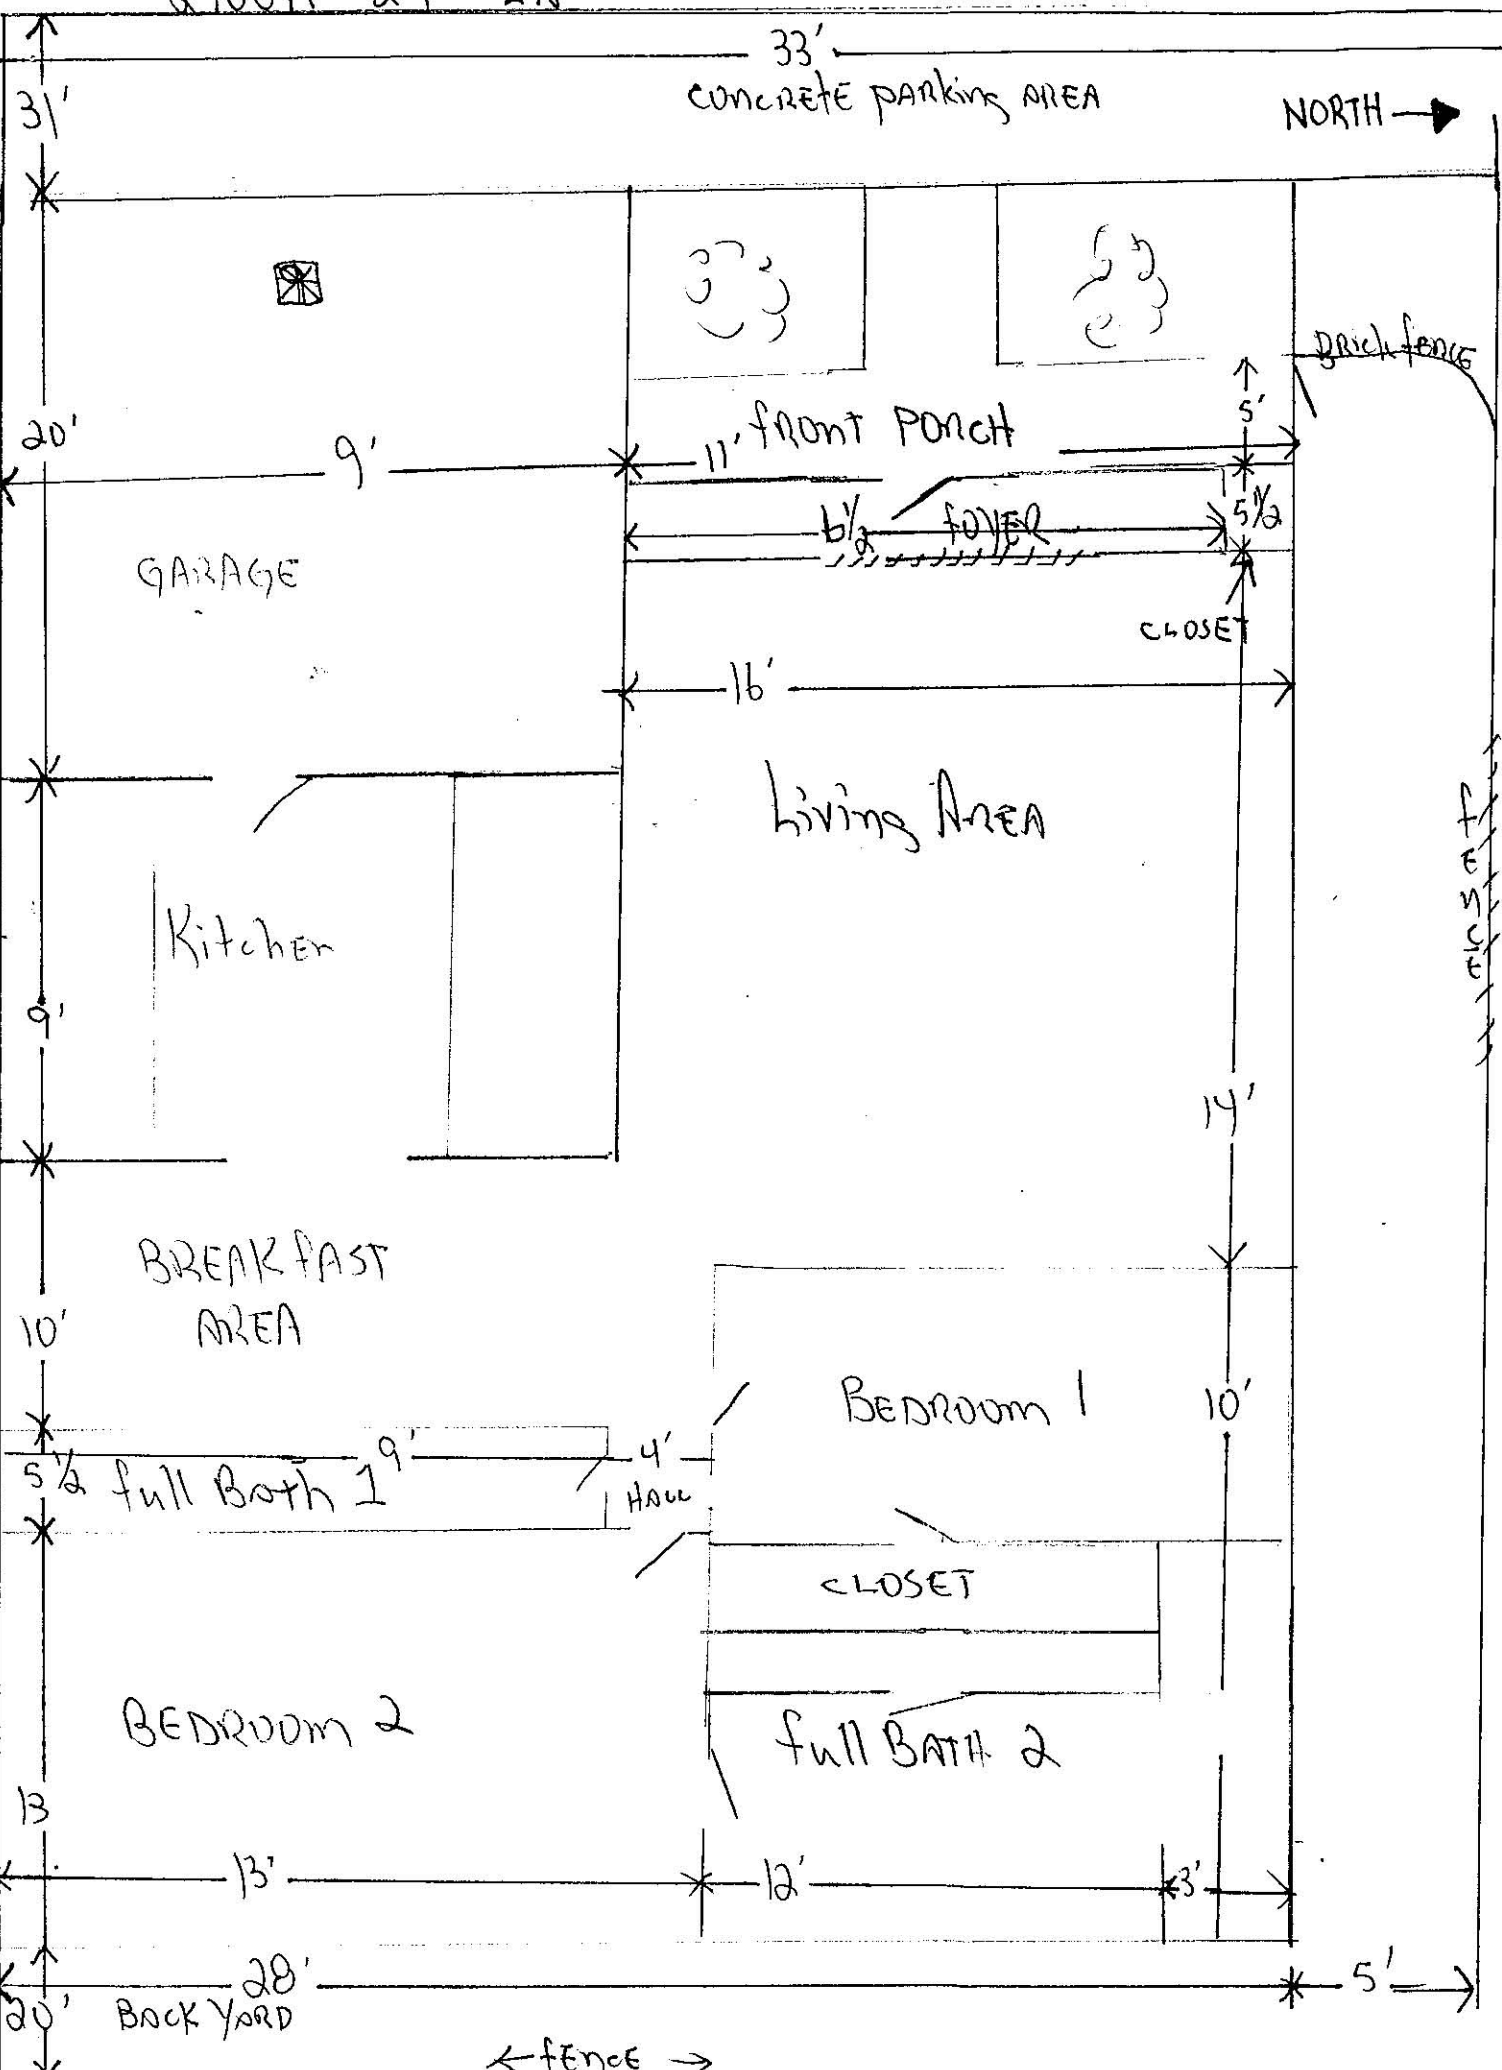 33'
CONCRETE PARKING AREA
31'
NORTH
BRICK fENCE
5'
20'
9'
11'
fRONT PORCH
6½
fOYER
5½
GARAGE
CLOSET
16'
Living AREA
fENCE
Kitchen
9'
14'
BREAKfAST
AREA
10'
BEDROOM 1
10'
9'
4'
5½
full Bath 1
HALL
CLOSET
BEDROOM 2
full BATH 2
13
13'
12'
3'
28'
5'
20'
BACK YARD
fENCE